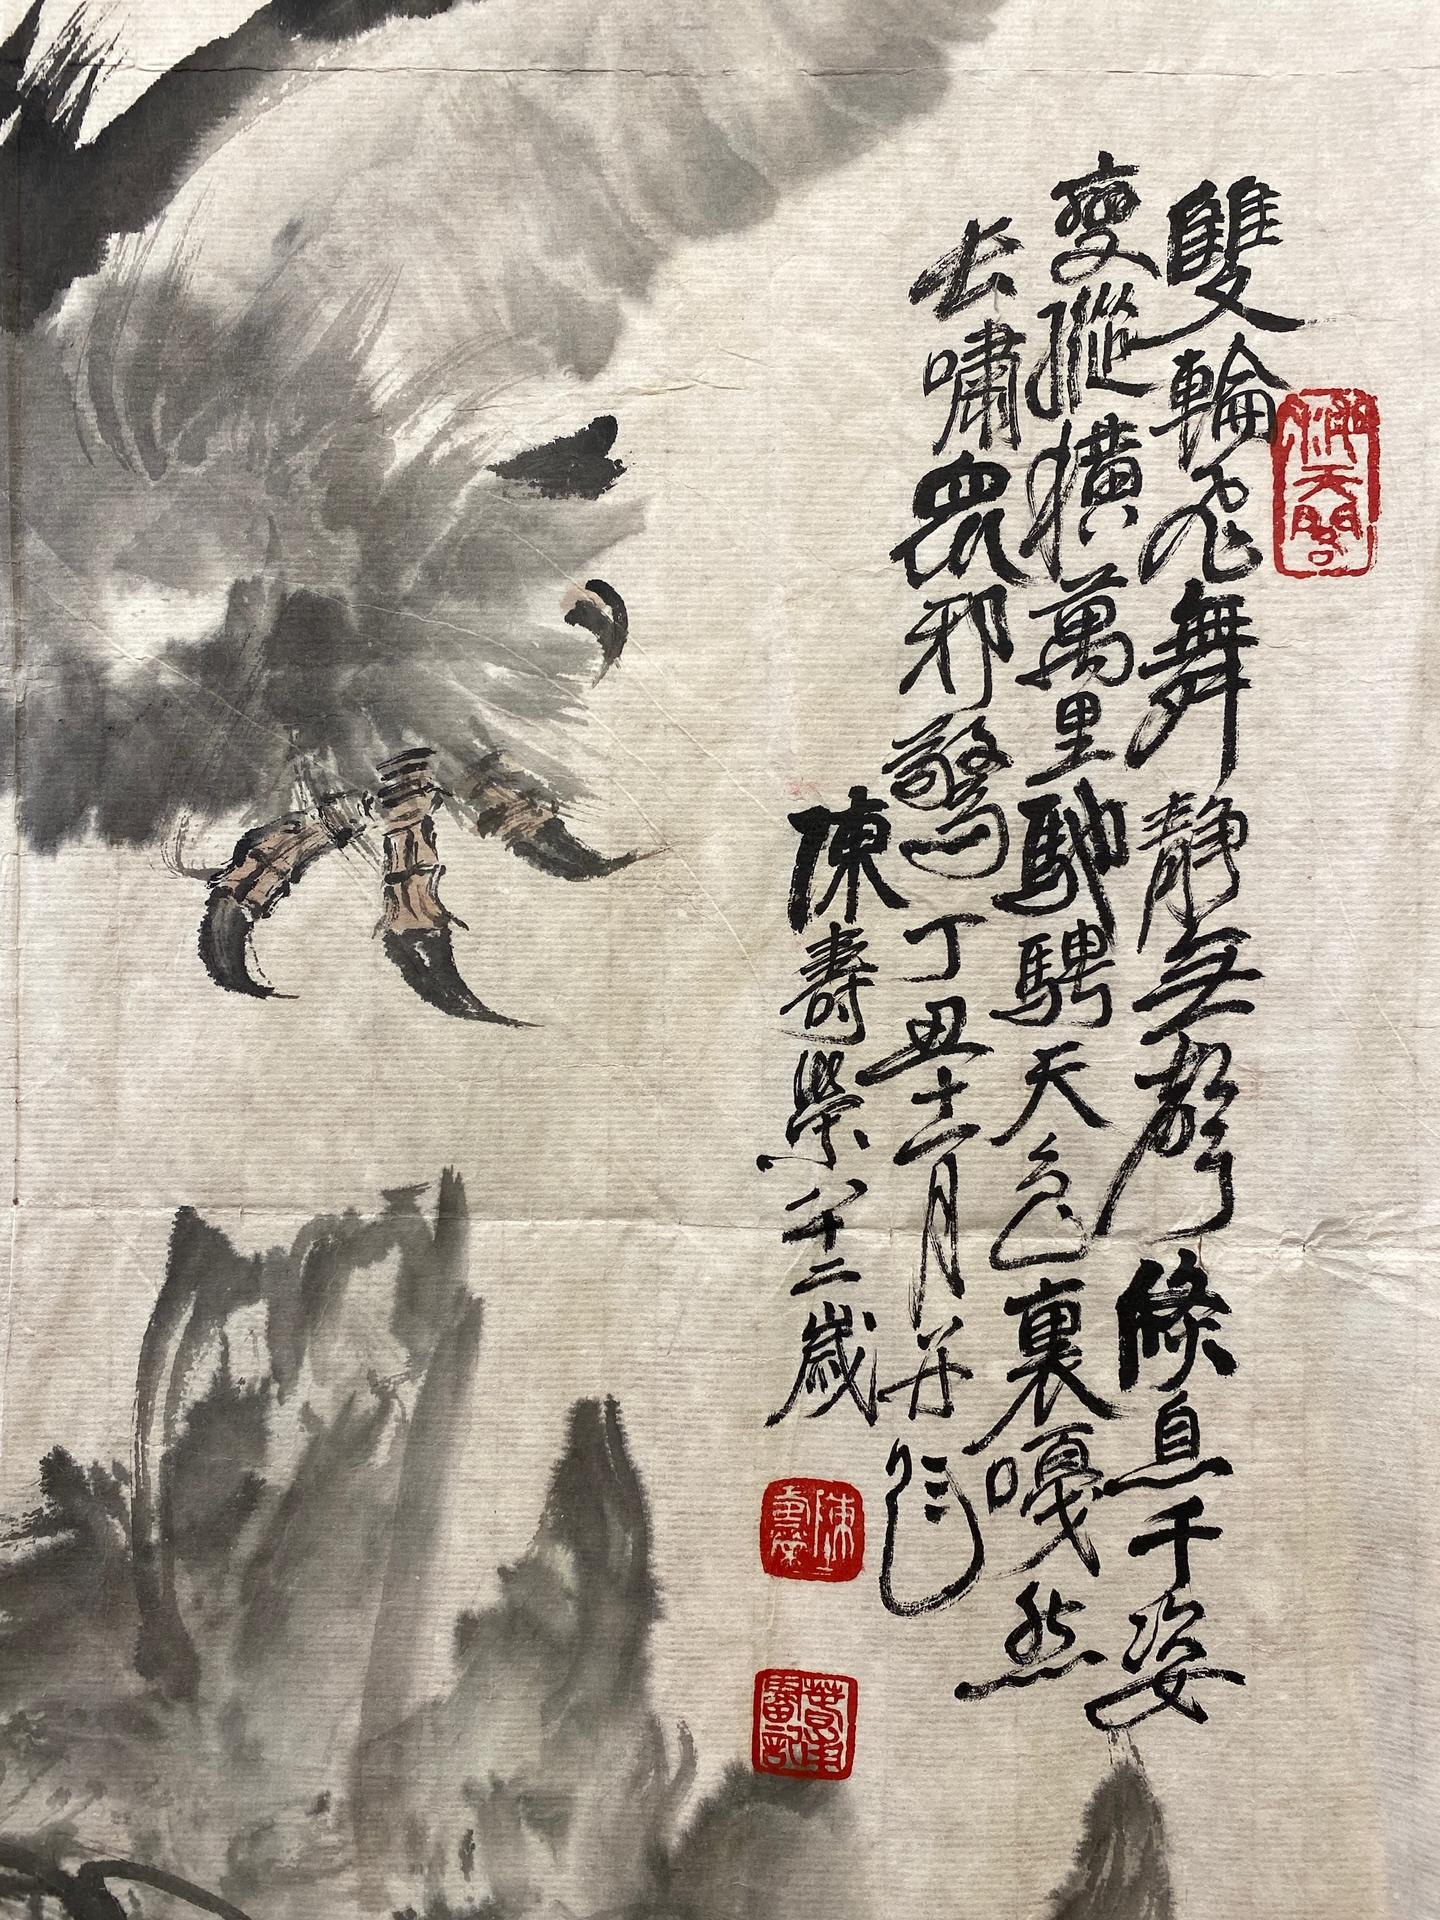 雙輪飛舞靜無聲倏息千姿
變猔獚萬里馳騁天色裏嘎然
长嘯眾邪驚丁丑十二月并作
陳壽榮八十二歲
陳壽榮